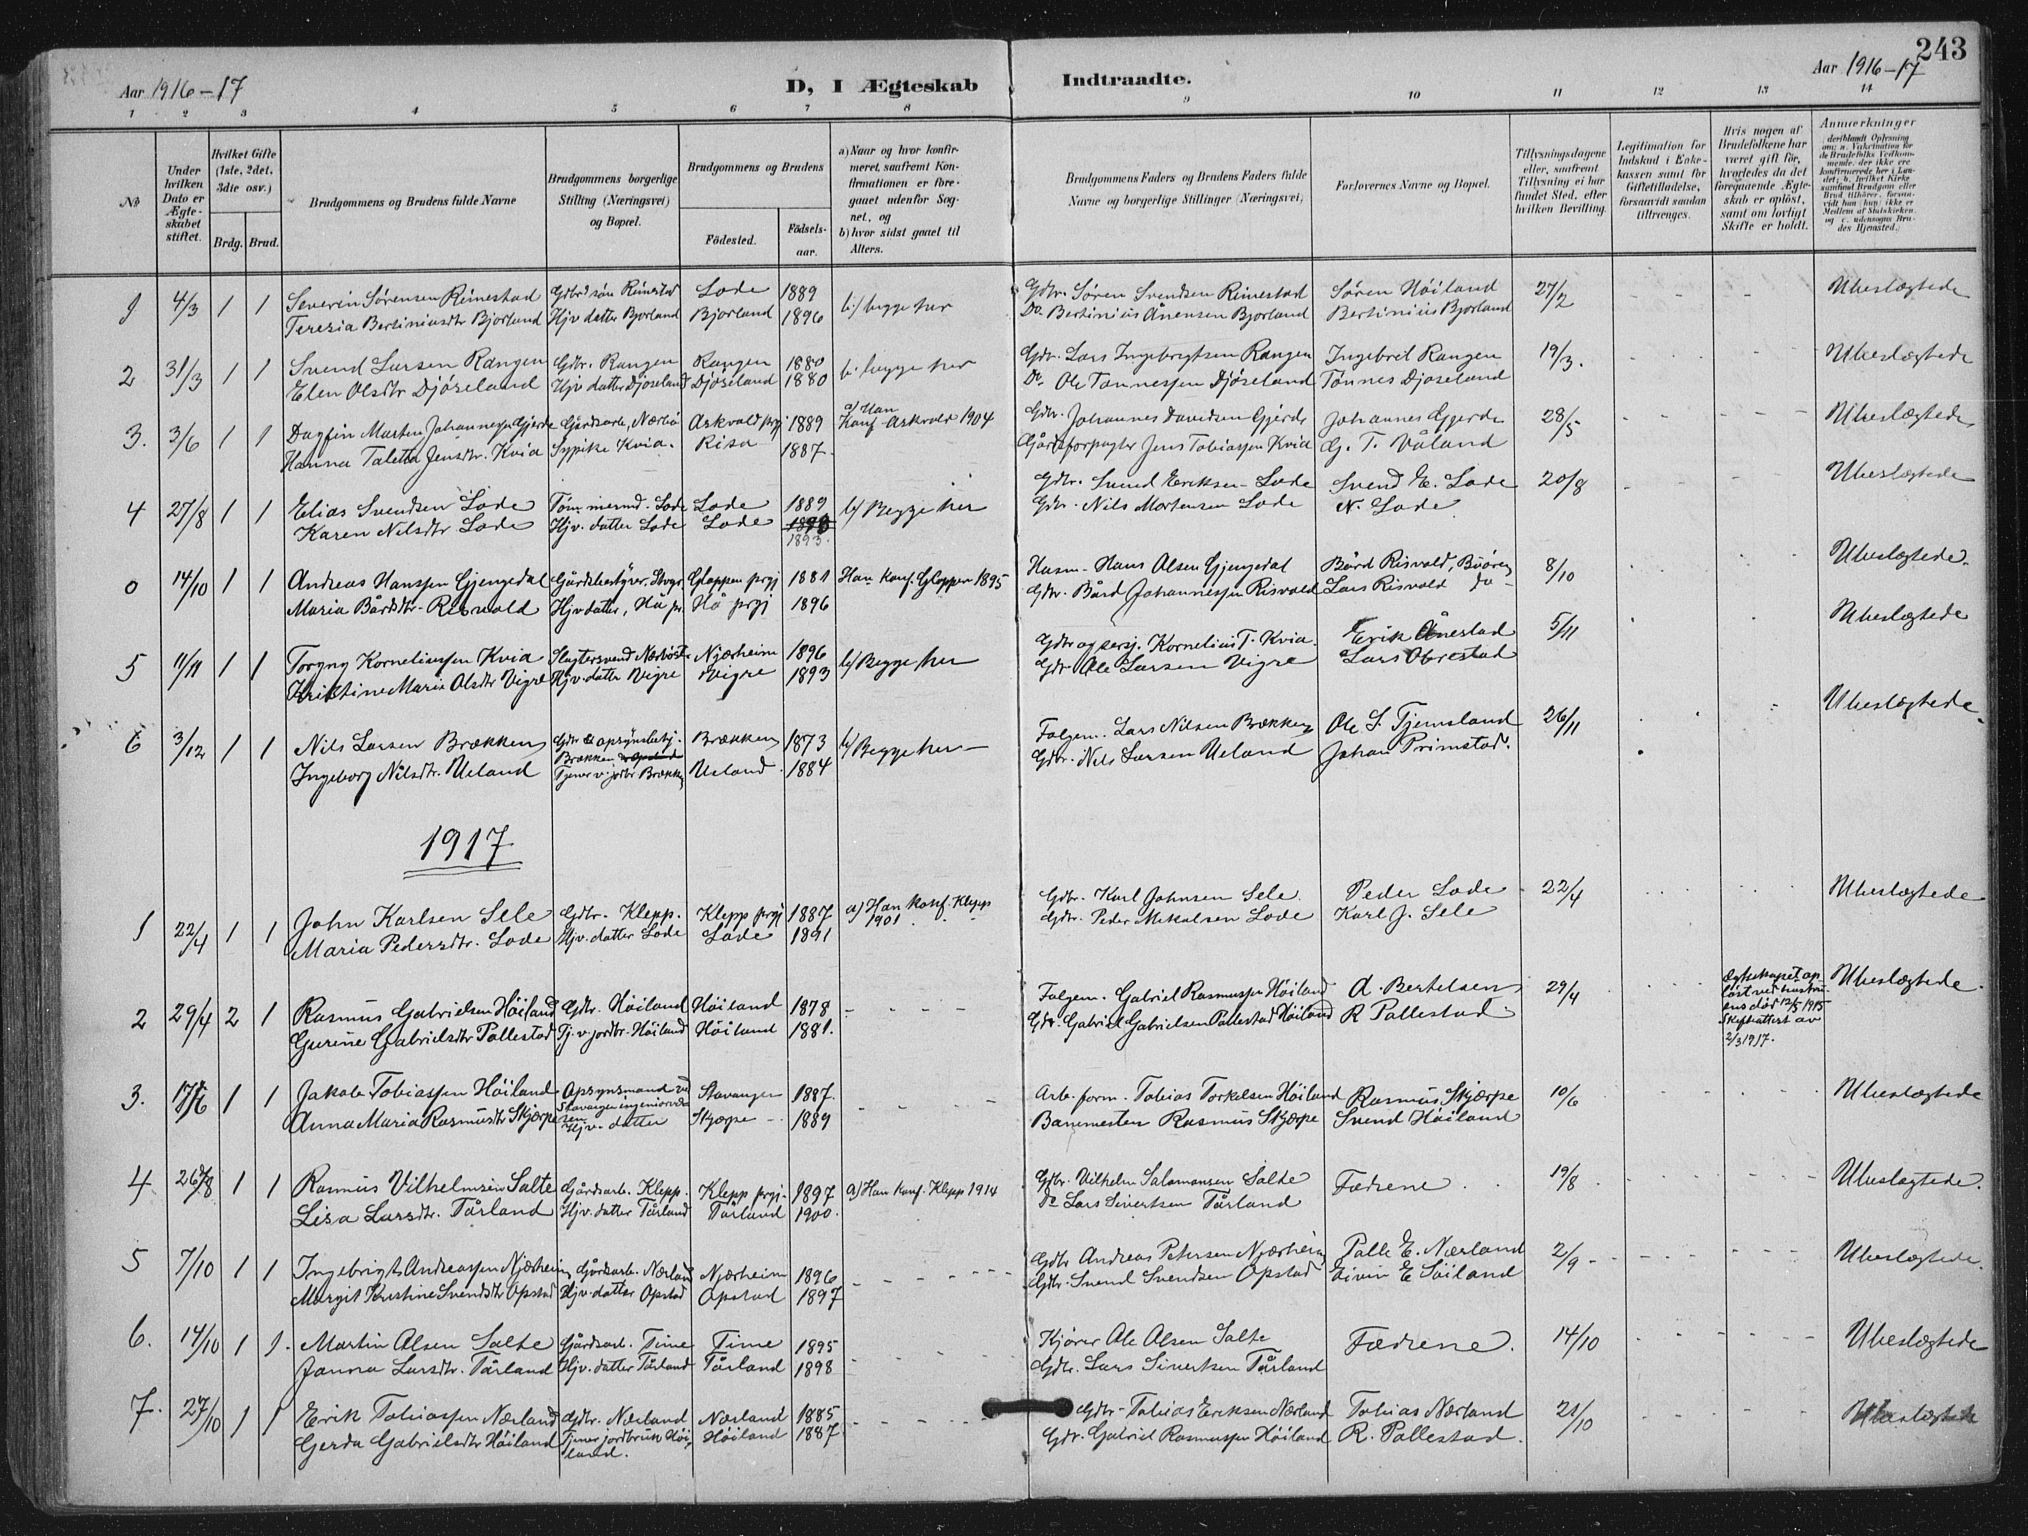 243
Aar 1916-17
D, I Ægteskab Indtraadte.
Aar 1916-17
1 2 3 4 5 6 7 8 9 10 11 12 13 14
No
Under hvilken Dato er Ægteskabet stiftet.
Hvilket Gifte (1ste, 2det, 3die osv.)
Brdg. Brud.
Brudgommens og Brudens fulde Navne
Brudgommens borgerlige Stilling (Næringsvei) og Bopæl.
Brudgommens og Brudens
Födested.
Födselsaar.
a) Naar og hvor konfirmeret, saafremt Konfirmationen er foregaaet udenfor Sognet, og
b) hvor sidst gaaet til Alters.
Brudgommens Faders og Brudens Faders fulde Navne og borgerlige Stillinger (Næringsvei)
Forlovernes Navne og Bopæl.
Tillysningsdagene eller, saafremt Tillysning ei har fundet Sted, efter hvilken Bevilling.
Legitimation for Indskud i Enkekassen samt for Giftetilladelse, forsaavidt saadan tiltrænges.
Hvis nogen af Brudefolkene har været gift för, hvorledes da det foregaaende Ægteskab er oplöst, samt om lovligt Skifte er holdt.
Anmærkninger
1 4/3 1 1 Severin Sørensen Rimestad Gdbr.d søn Rimestad Lode 1889 b/ begge her Gdbr. Søren Svendsen Rimestad Søren Höiland 27/2 Ubeslægtede
Terezia Bertiniusdtr Bjorland Hjv datter Bjorland Bjorland 1896 Do. Bertinius Ånensen Bjorland Bertinius Bjorland
2 31/3 1 1 Svend Larsen Rangen Gdbr. Rangen Rangen 1880 b. begge her Gdbr. Lars Ingebrigtsen Rangen Ingebret Rangen 19/3. Ubeslægtede
Elen Olsdtr Djöseland Hjv datter Djöseland Djöseland 1880 Do. Ole Tönnessen Djöseland Tönnes Djöseland
3. 3/6 1 1 Dagfin Marten Johannessen Gjerde Gårdsarb. Nærbö Askvold prgj 1889 a) Han Konf. Askvold 1904 Gdbr. Johannes Davidsen Gjerde Johannes Gjerde 28/5 Ubeslægtede
Hanna Taletta Jensdtr. Kvia Sypike Kvia. Risa 1887. Gårdsforpagter Jens Tobiassen Kvia G. T. Våland
4 27/8 1 1 Elias Svendsen Lode Tömmermd. Lode Lode 1889 b/ Begge her Gdbr. Svend Eriksen Lode Svend E. Lode 20/8 Ubeslægtede
Karen Nilsdtr Lode Hjv. datter Lode Lode 1893. Gdbr. Nils Mortensen Lode N. Lode.
0 14/10 1 1 Andreas Hanssen Gjengedal Gårdsbestyrer Gloppen prgj 1881 Han Konf. Gloppen 1895 Husm. Hans Olsen Gjengedal Bård Risvold, 8/10 Ubeslægtede.
Maria Bårdsdtr. Risvold Hjv datter, Hå pr. Hå prgj 1896 Gdbr. Bård Johannessen Risvold Lars Risvold do
5 11/11 1 1 Torgny Korneliussen Kvia Slagtersvend Nærbö Njærheim 1896 b/ Begge her Gdbr og sersj. Kornelius T. Kvia. Erik Ånestad 5/11 Ubeslægtede
Kristine Marie Olsdtr Vigre Hjv. datter Vigre Vigre 1893 Gdbr Ole Larsen Vigre Lars Obrestad
6 3/12 1 1 Nils Larsen Brækken Gdbr & opsynsbetj. Brækken Brækken 1873 b/ Begge her Folgem. Lars Nilsen Brækken Ole S. Tjemsland 26/11 Ubeslægtede
Ingeborg Nilsdtr. Ueland Tjener v. jordbr Brækken Ueland 1884 Gdbr. Nils Larsen Ueland Johan Primstad.
1917
1 22/4 1 1 John Karlsen Sele Gdbr. Klepp. Klepp prgj 1887 a) Han Konf. Klepp 1901 Gdbr. Karl Johnsen Sele Peder Lode 22/4 Ubeslægtede
Maria Pedersdtr. Lode Hjv. datter Lode Lode 1891 Gdbr. Peder Mikalsen Lode Karl J. Sele
2 29/4 2 1 Rasmus Gabrielsen Höiland Gdbr. Höiland Höiland 1878 Folgem. Gabriel Rasmussen Höiland A. Bertelsen 29/4 Ægteskapet opløst ved hustruens død 12/5 1915 Skifteattest av 2/3 1917. Ubeslægtede.
Gurine Gabrielsdtr Pallestad Tj. v. jordbr. Höiland Höiland 1881. Gdbr. Gabriel Gabrielsen Pallestad Höiland R Pallestad
3. 17/6 1 1 Jakob Tobiassen Höiland Opsynsmand ved Stavanger ingeniørvæsen Stavanger 1887. Arb. form. Tobias Torkelsen Höiland Rasmus Skjærpe 10/6 Ubeslægtede
Anna Maria Rasmusdtr Skjærpe Hjv. datter Skjærpe 1889 Banemester Rasmus Skjærpe Svend Höiland
4 26/8 1 1 Rasmus Vilhelmsen Salte Gårdsarb. Klepp. Klepp prgj. 1897 a) Han konf. Klepp 1914 Gdbr. Vilhelm Salomonsen Salte Fædrene 19/8 Ubeslægtede.
Lisa Larsdtr. Tårland Hjv. datter Tårland Tårland 1900. Do Lars Sivertsen Tårland
5 7/10 1 1 Ingebrigt Andreassen Njærheim Gårdsarb. Nærland Njærheim 1896 Gdbr Andreas Petersen Njærheim Palle E. Nærland 2/9 Ubeslægtede.
Margit Kristine Svendsdtr Opstad Hjv. datter Opstad Opstad 1897 Gdbr. Svend Svendsen Opstad Eivin E Söiland
6. 14/10 1 1 Martin Olsen Salte Gårdsarb. Time Time 1895 Kjörer Ole Olsen Salte Fædrene. 14/10 Ubeslægtede
Janna Larsdtr. Tårland Hjv. datter Tårland Tårland 1898 Gdbr. Lars Sivertsen Tårland
7. 27/10 1 1 Erik Tobiassen Nærland Gdbr. Nærland Nærland 1885 Gdbr. Tobias Eriksen Nærland Tobias Nærland 21/10 Ubeslægtede
Gerda Gabrielsdtr Höiland Tjener jordbruk Höiland. Höiland 1887 Gdbr. Gabriel Rasmussen Höiland R. Pallestad.